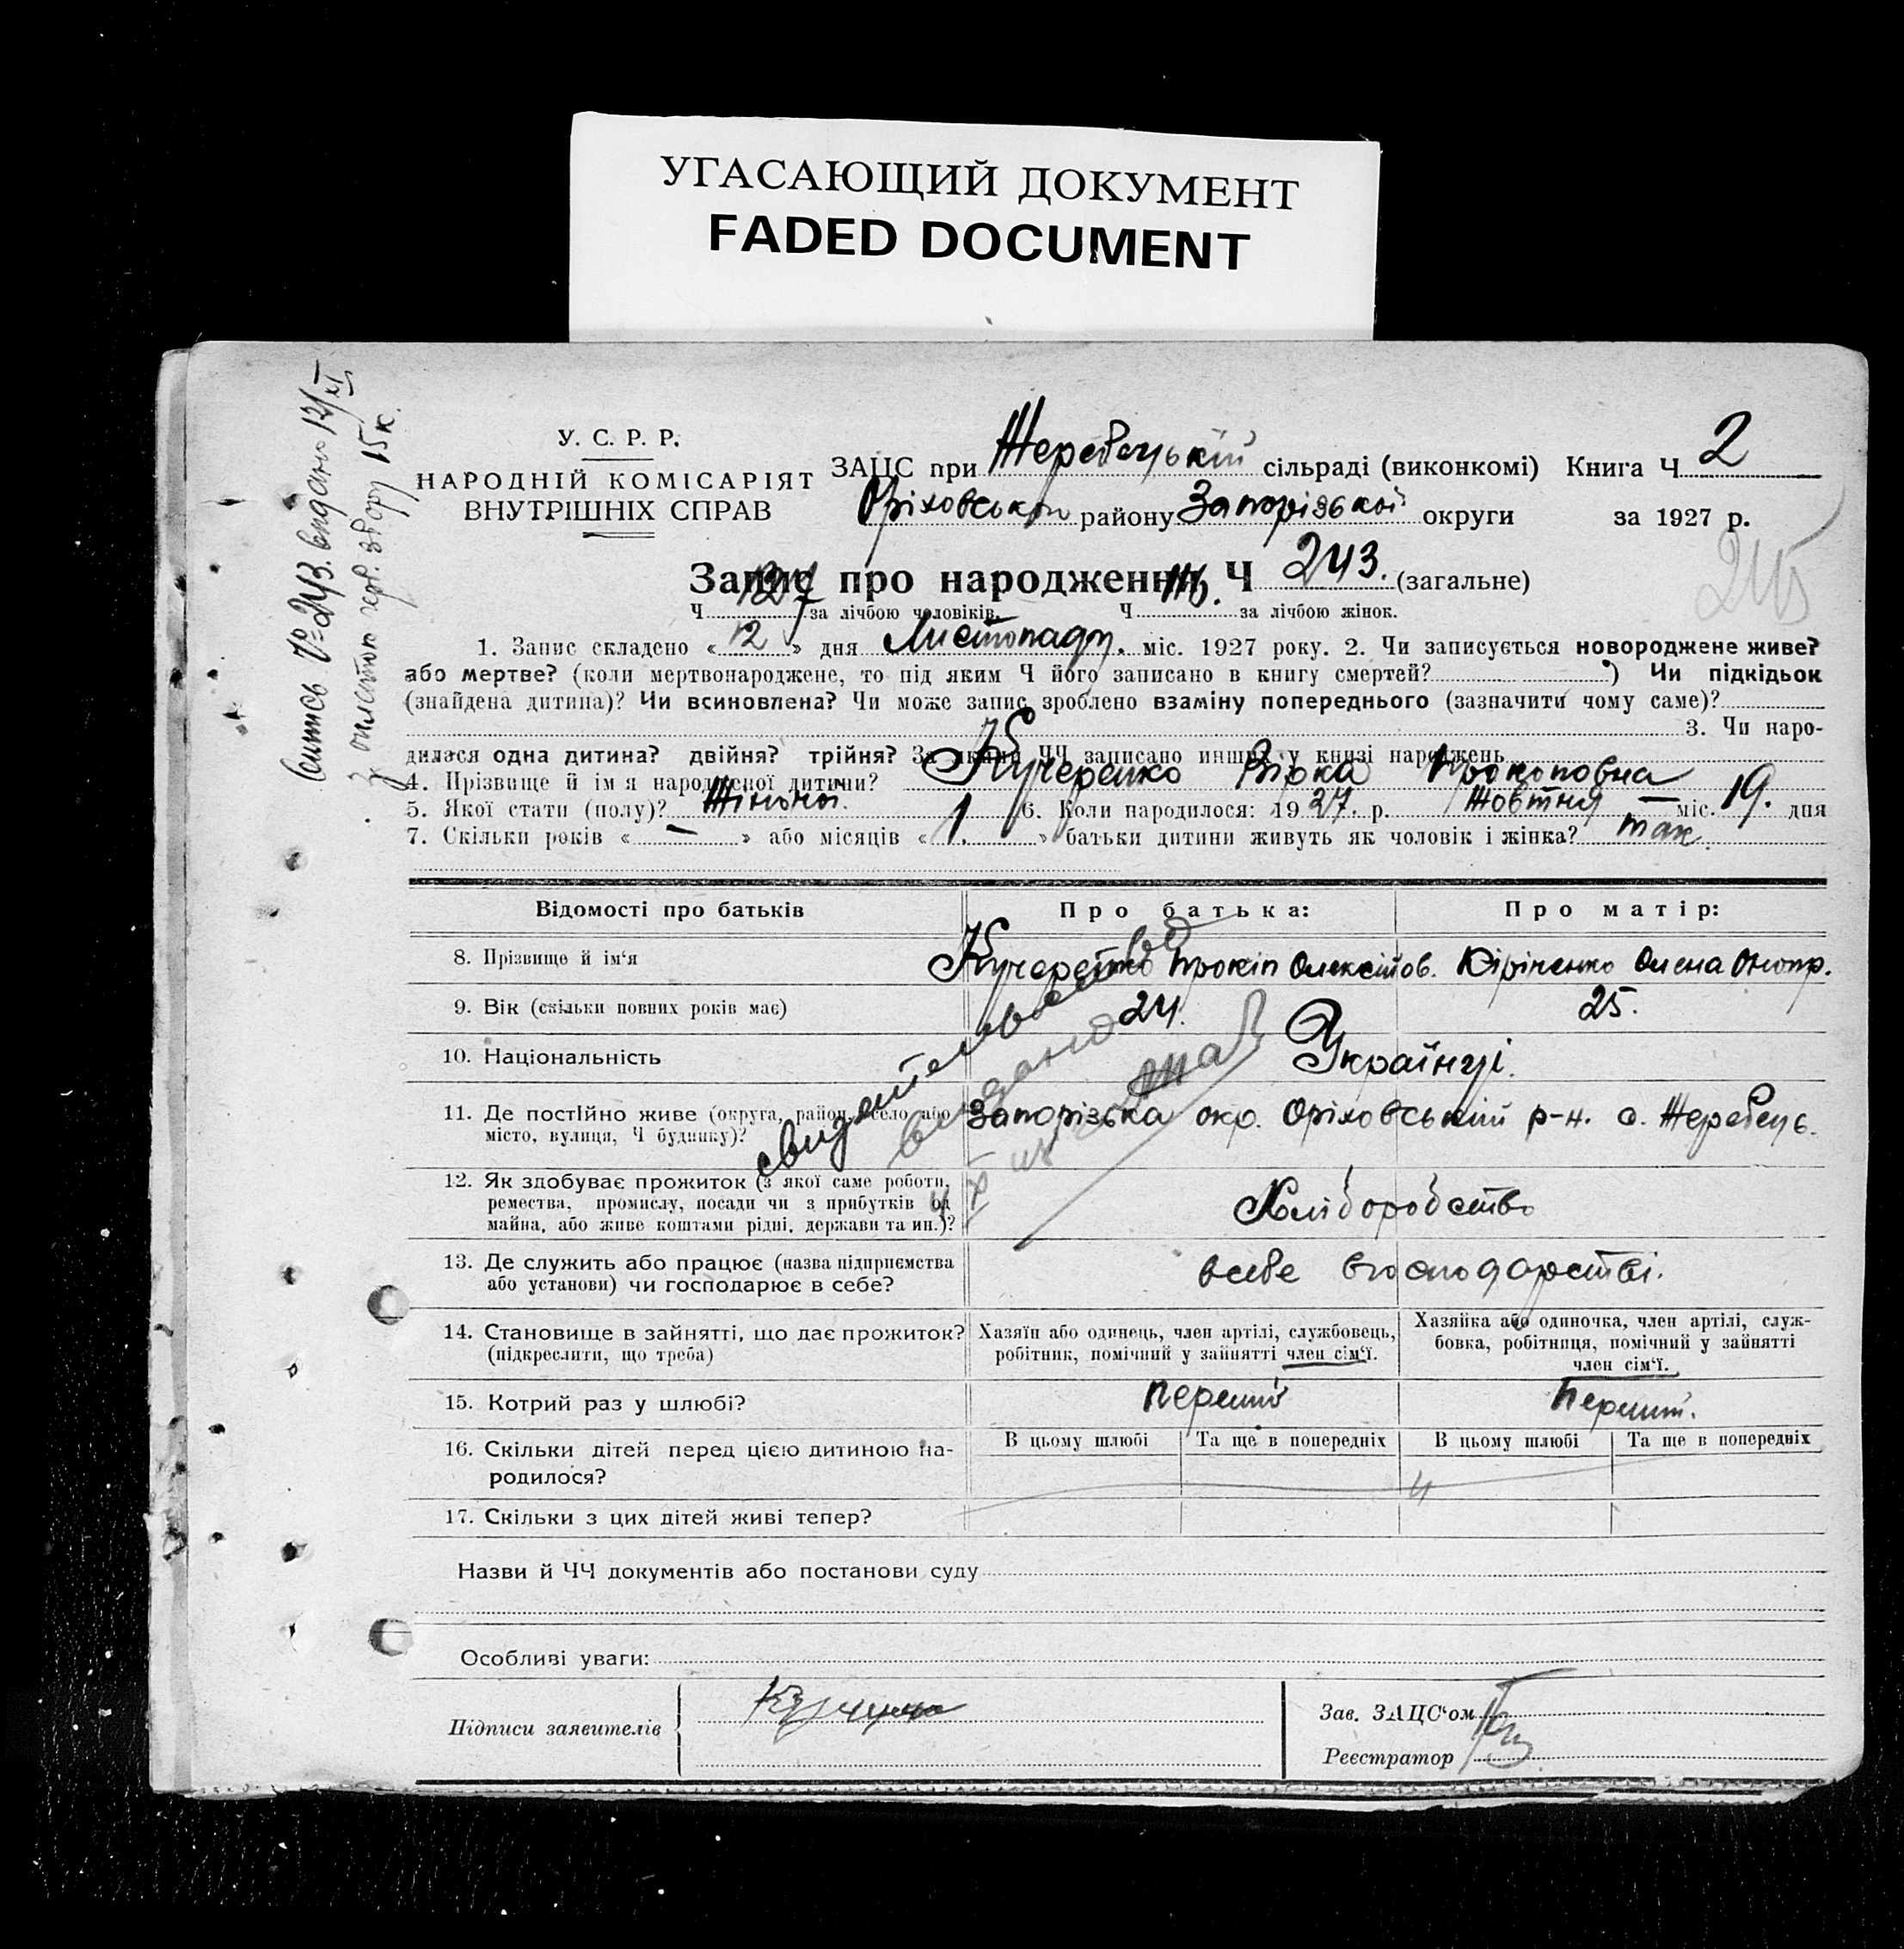 УГАСАЮЩИЙ ДОКУМЕНТ
FADED DOCUMENT
У. С. Р. Р.
НАРОДНІЙ КОМІСАРІЯТ
ВНУТРІШНІХ СПРАВ
ЗАЦС при Жеребецькій сільраді (виконкомі) Книга Ч 2
Оріховського району Запорізької округи за 1927 р.
Запис про народження Ч 243. (загальне)
245
Ч 127 за лічбою чоловіків. Ч 116. за лічбою жінок.
1. Запис складено « 12 » дня Листопаду. міс. 1927 року. 2. Чи записується новороджене живе?
або мертве? (коли мертвонароджене, то під яким Ч його записано в книгу смертей? ) Чи підкідьок
(знайдена дитина)? Чи всиновлена? Чи може запис зроблено взаміну попереднього (зазначити чому саме)?
3. Чи наро-
дилася одна дитина? двійня? трійня? За якими ЧЧ записано инших у книзі народжень
4. Прізвище й ім я народженої дитини? Кучеренко Вірка Прокоповна
5. Якої стати (полу)? Жіночої. 6. Коли народилося: 1927. р. Жовтня — міс. 19. дня
7. Скільки років « — » або місяців « 1. » батьки дитини живуть як чоловік і жінка? так.
Відомості про батьків Про батька: Про матір:
8. Прізвище й ім'я Кучеренко Прокіп Олексійов. Кіріченко Олена Онопр.
9. Вік (скільки повних років має) 24. 25.
10. Національність Українці.
11. Де постійно живе (округа, район, село або Запорізька окр. Оріховський р-н. с. Жеребець.
місто, вулиця, Ч будинку)?
свидетельство
видано
12. Як здобуває прожиток (з якої саме роботи,
ремества, промислу, посади чи з прибутків од
майна, або живе коштами рідні, держави та ин.)? Хліборобство
13. Де служить або працює (назва підприємства
або установи) чи господарює в себе? всебе вгосподарстві.
14. Становище в зайнятті, що дає прожиток?
(підкреслити, що треба)
Хазяїн або одинець, член артілі, службовець,
робітник, помічний у зайнятті член сім'ї.
Хазяйка або одиночка, член артілі, служ-
бовка, робітниця, помічний у зайнятті
член сім'ї.
15. Котрий раз у шлюбі? перший перший.
16. Скільки дітей перед цією дитиною на-
родилося?
В цьому шлюбі Та ще в попередніх В цьому шлюбі Та ще в попередніх
17. Скільки з цих дітей живі тепер?
Назви й ЧЧ документів або постанови суду
Особливі уваги:
Підписи заявителів
Зав. ЗАЦС'ом
Реєстратор
Витяг №243. видано 12/XI
з оплатою герб. збору 15 к.